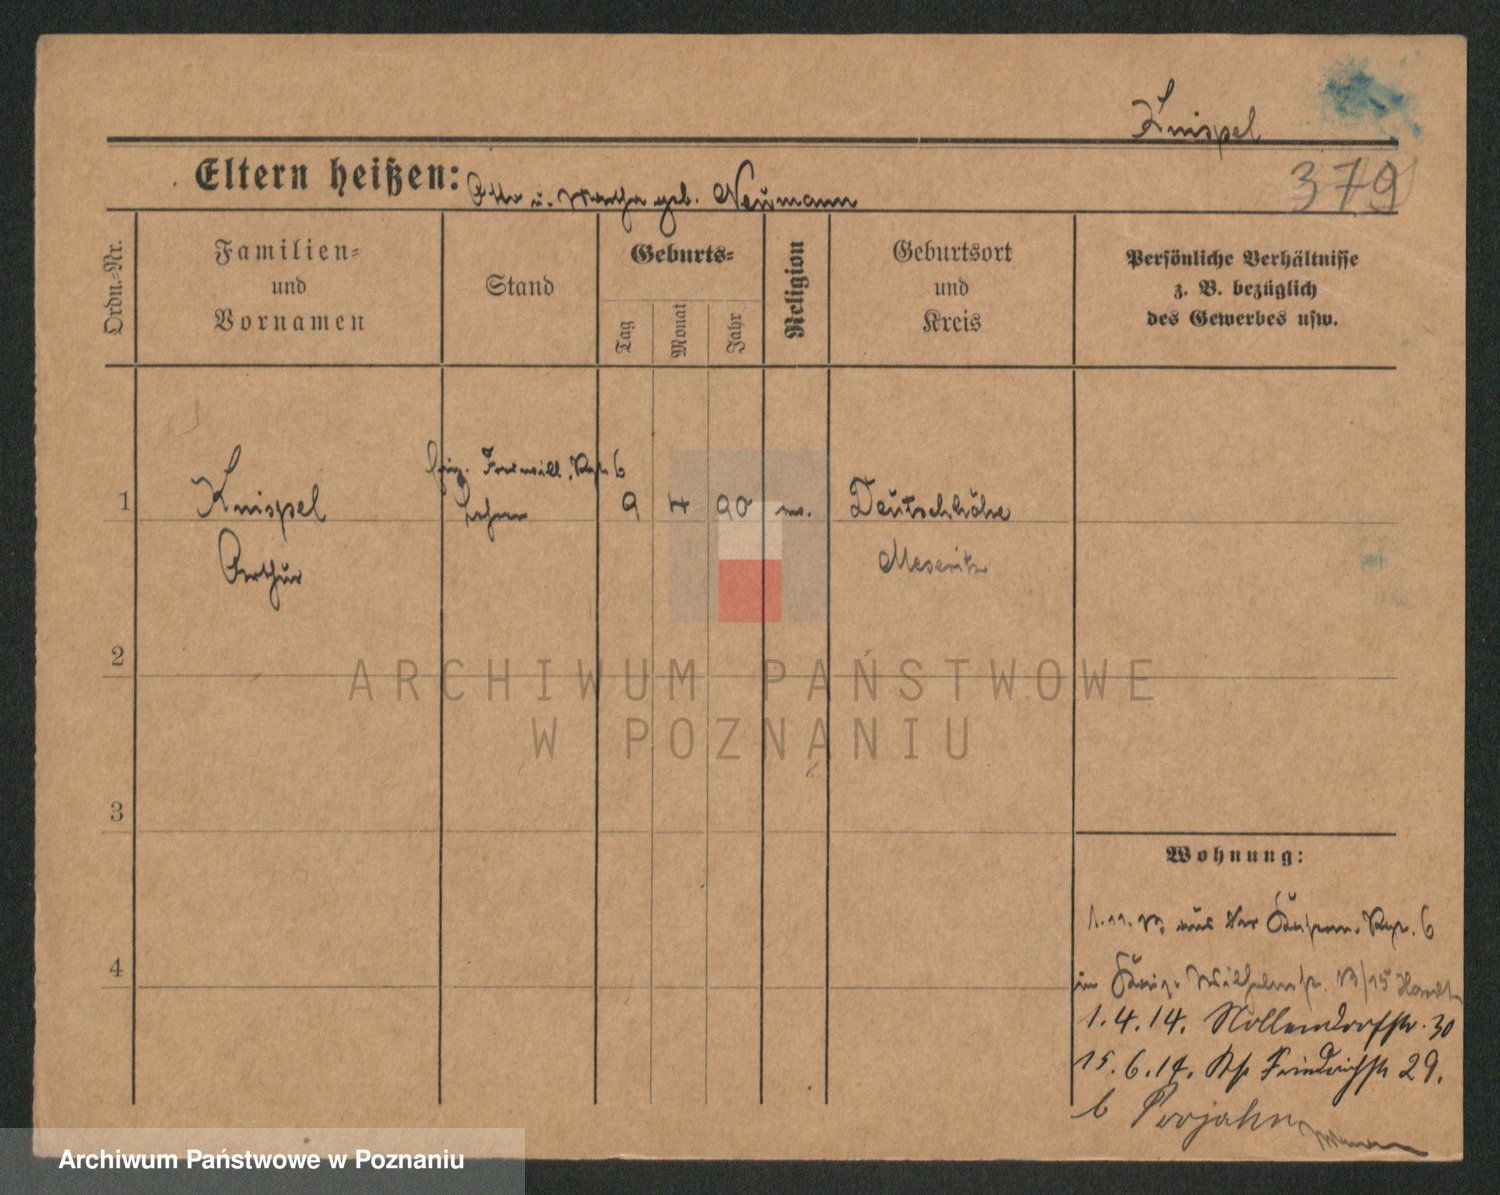 Knispel
Eltern heißen: Otto u. Martha geb. Neumann
379
Ordn.-Nr.
Familien-
und
Vornamen
Stand
Geburts-
Tag
Monat
Jahr
Religion
Geburtsort
und
Kreis
Persönliche Verhältnisse
z. B. bezüglich
des Gewerbes usw.
Freiwill. Rgt. 6
1 Knispel Lehrer 9 4 90 Deutschhöhe
Arthur Meseritz
2
3
4
ARCHIWUM PAŃSTWOWE
W POZNANIU
Wohnung:
1.11.13 aus der Kasern. Rgt. 6
in Wilhelmstr. 13/15
1.4.14. Nollendorfstr. 30
15.6.14. Friedrichstr 29.
b
Archiwum Państwowe w Poznaniu